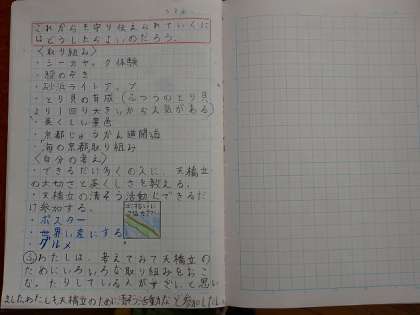 これからも守り伝えられていくに
はどうしたらよいのだろう。
〈取り組み〉
・シーカヤック体験
・股のぞき
・砂浜ライトアップ
・とり貝の育成(ふつうのとり貝
より1回り大きいから人気がある)
・美くしい景色
・京都じゅうかん道開通
・海の京都取り組み
〈自分の考え〉
・できるだけ多くの人に、天橋立
の大切さと美くしさを教える。
・天橋立の清そう活動にできるだ
け参加する。
・ポスター
・世界い産にする
・グルメ
わたしは、考えてみて天橋立の
ためにいろいろな取り組みをおこ
なったりしている人がすごいと思い
ましたわたしも天橋立のために清そう活動など参加したい